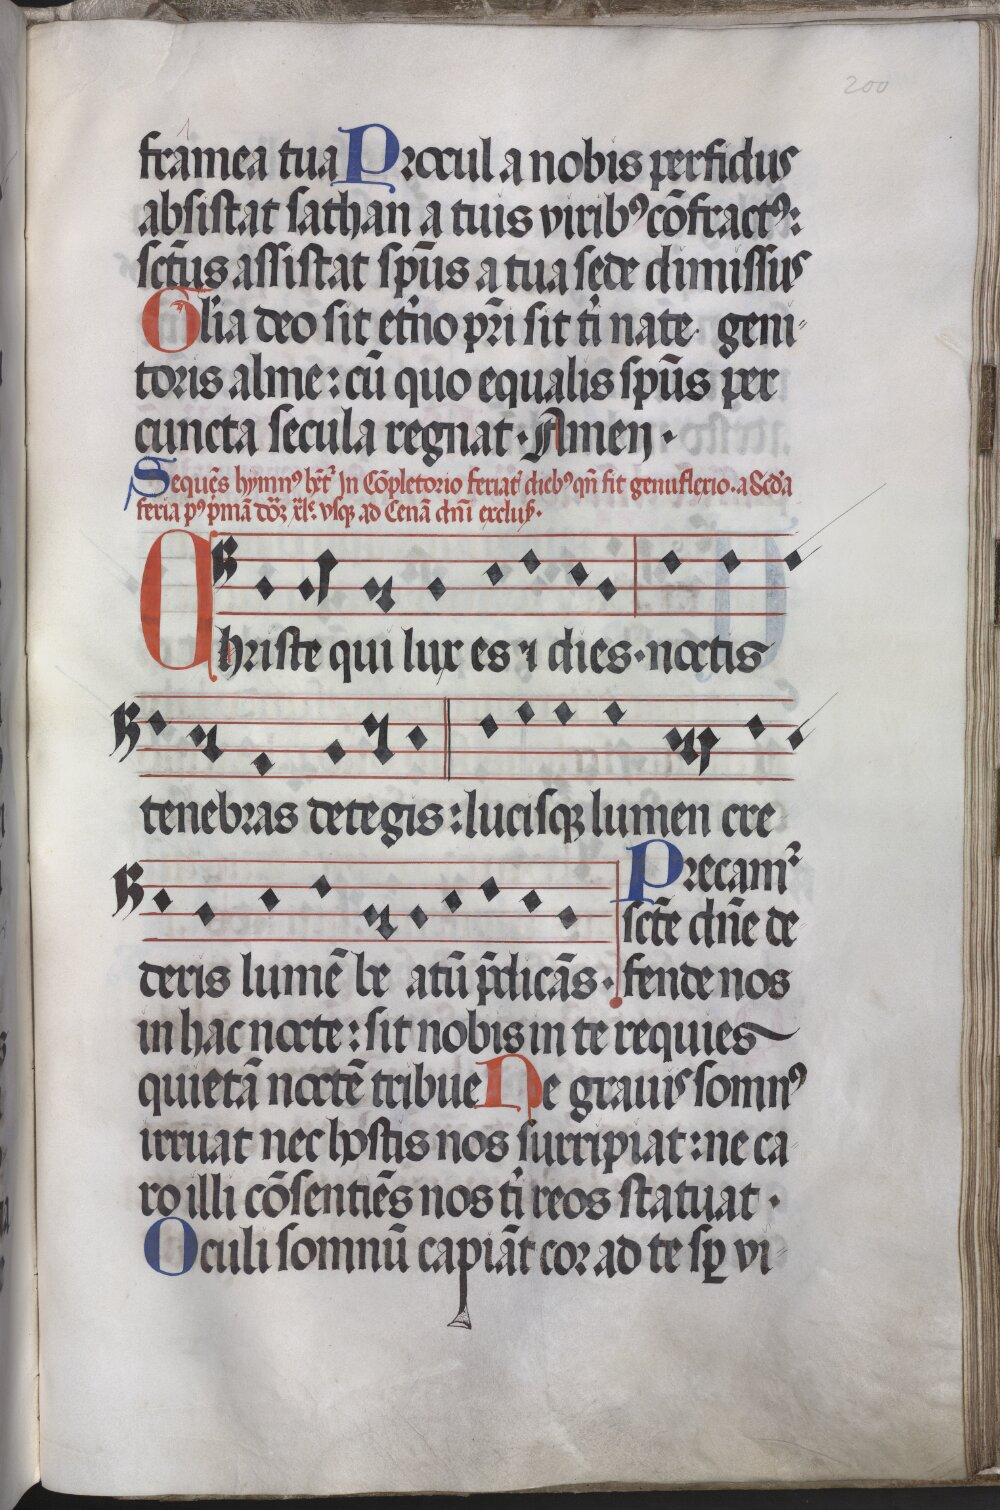 200
framea tua Procul a nobis perfidus
absistat sathan a tuis viribꝰ cōfractꝰ:
sct̄us assistat sp̄us a tua sede dimissus
Gl'ia deo sit et'no pr̄i sit t' nate geni-
toris alme: cū quo equalis sp̄us per
cuncta secula regnat · Amen ·
Sequēs hymnꝰ hēt' In Cōpletorio feriat' diebꝰ qn̄ fit genuflexio · a Scd'a
feria pꝰ pmā dōꝝ xl'e vsqꝫ ad Cenā dn̄i
Christe qui lux es ⁊ dies · noctis
tenebras detegis: lucisqꝫ lumen cre
deris lumē be atū p̄dicās ·
Precamᷣ
sct̄e dn̄e de
fende nos
in hac nocte: sit nobis in te requies
quietā noctē tribue Ne grauis somnꝰ
irruat nec hostis nos surripiat: ne ca
ro illi cōsentiēs nos t' reos statuat ·
Oculi somnū capiāt cor ad te sꝑ vi-